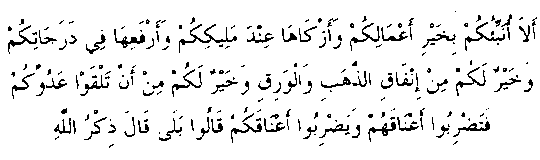 أَلاَ أُنَبِّئُكُمْ بِخَيْرِ أَعْمَالِكُمْ وَأَزْكَاهَا عِنْدَ مَلِيكِكُمْ وَأَرْفَعِهَا فِي دَرَجَاتِكُمْ
وَخَيْرٌ لَكُمْ مِنْ إِنْفَاقِ الذَّهَبِ وَالْوَرِقِ وَخَيْرٌ لَكُمْ مِنْ أَنْ تَلْقَوْا عَدُوَّكُمْ
فَتَضْرِبُوا أَعْنَاقَهُمْ وَيَضْرِبُوا أَعْنَاقَكُمْ قَالُوا بَلَى قَالَ ذِكْرُ اللَّهِ